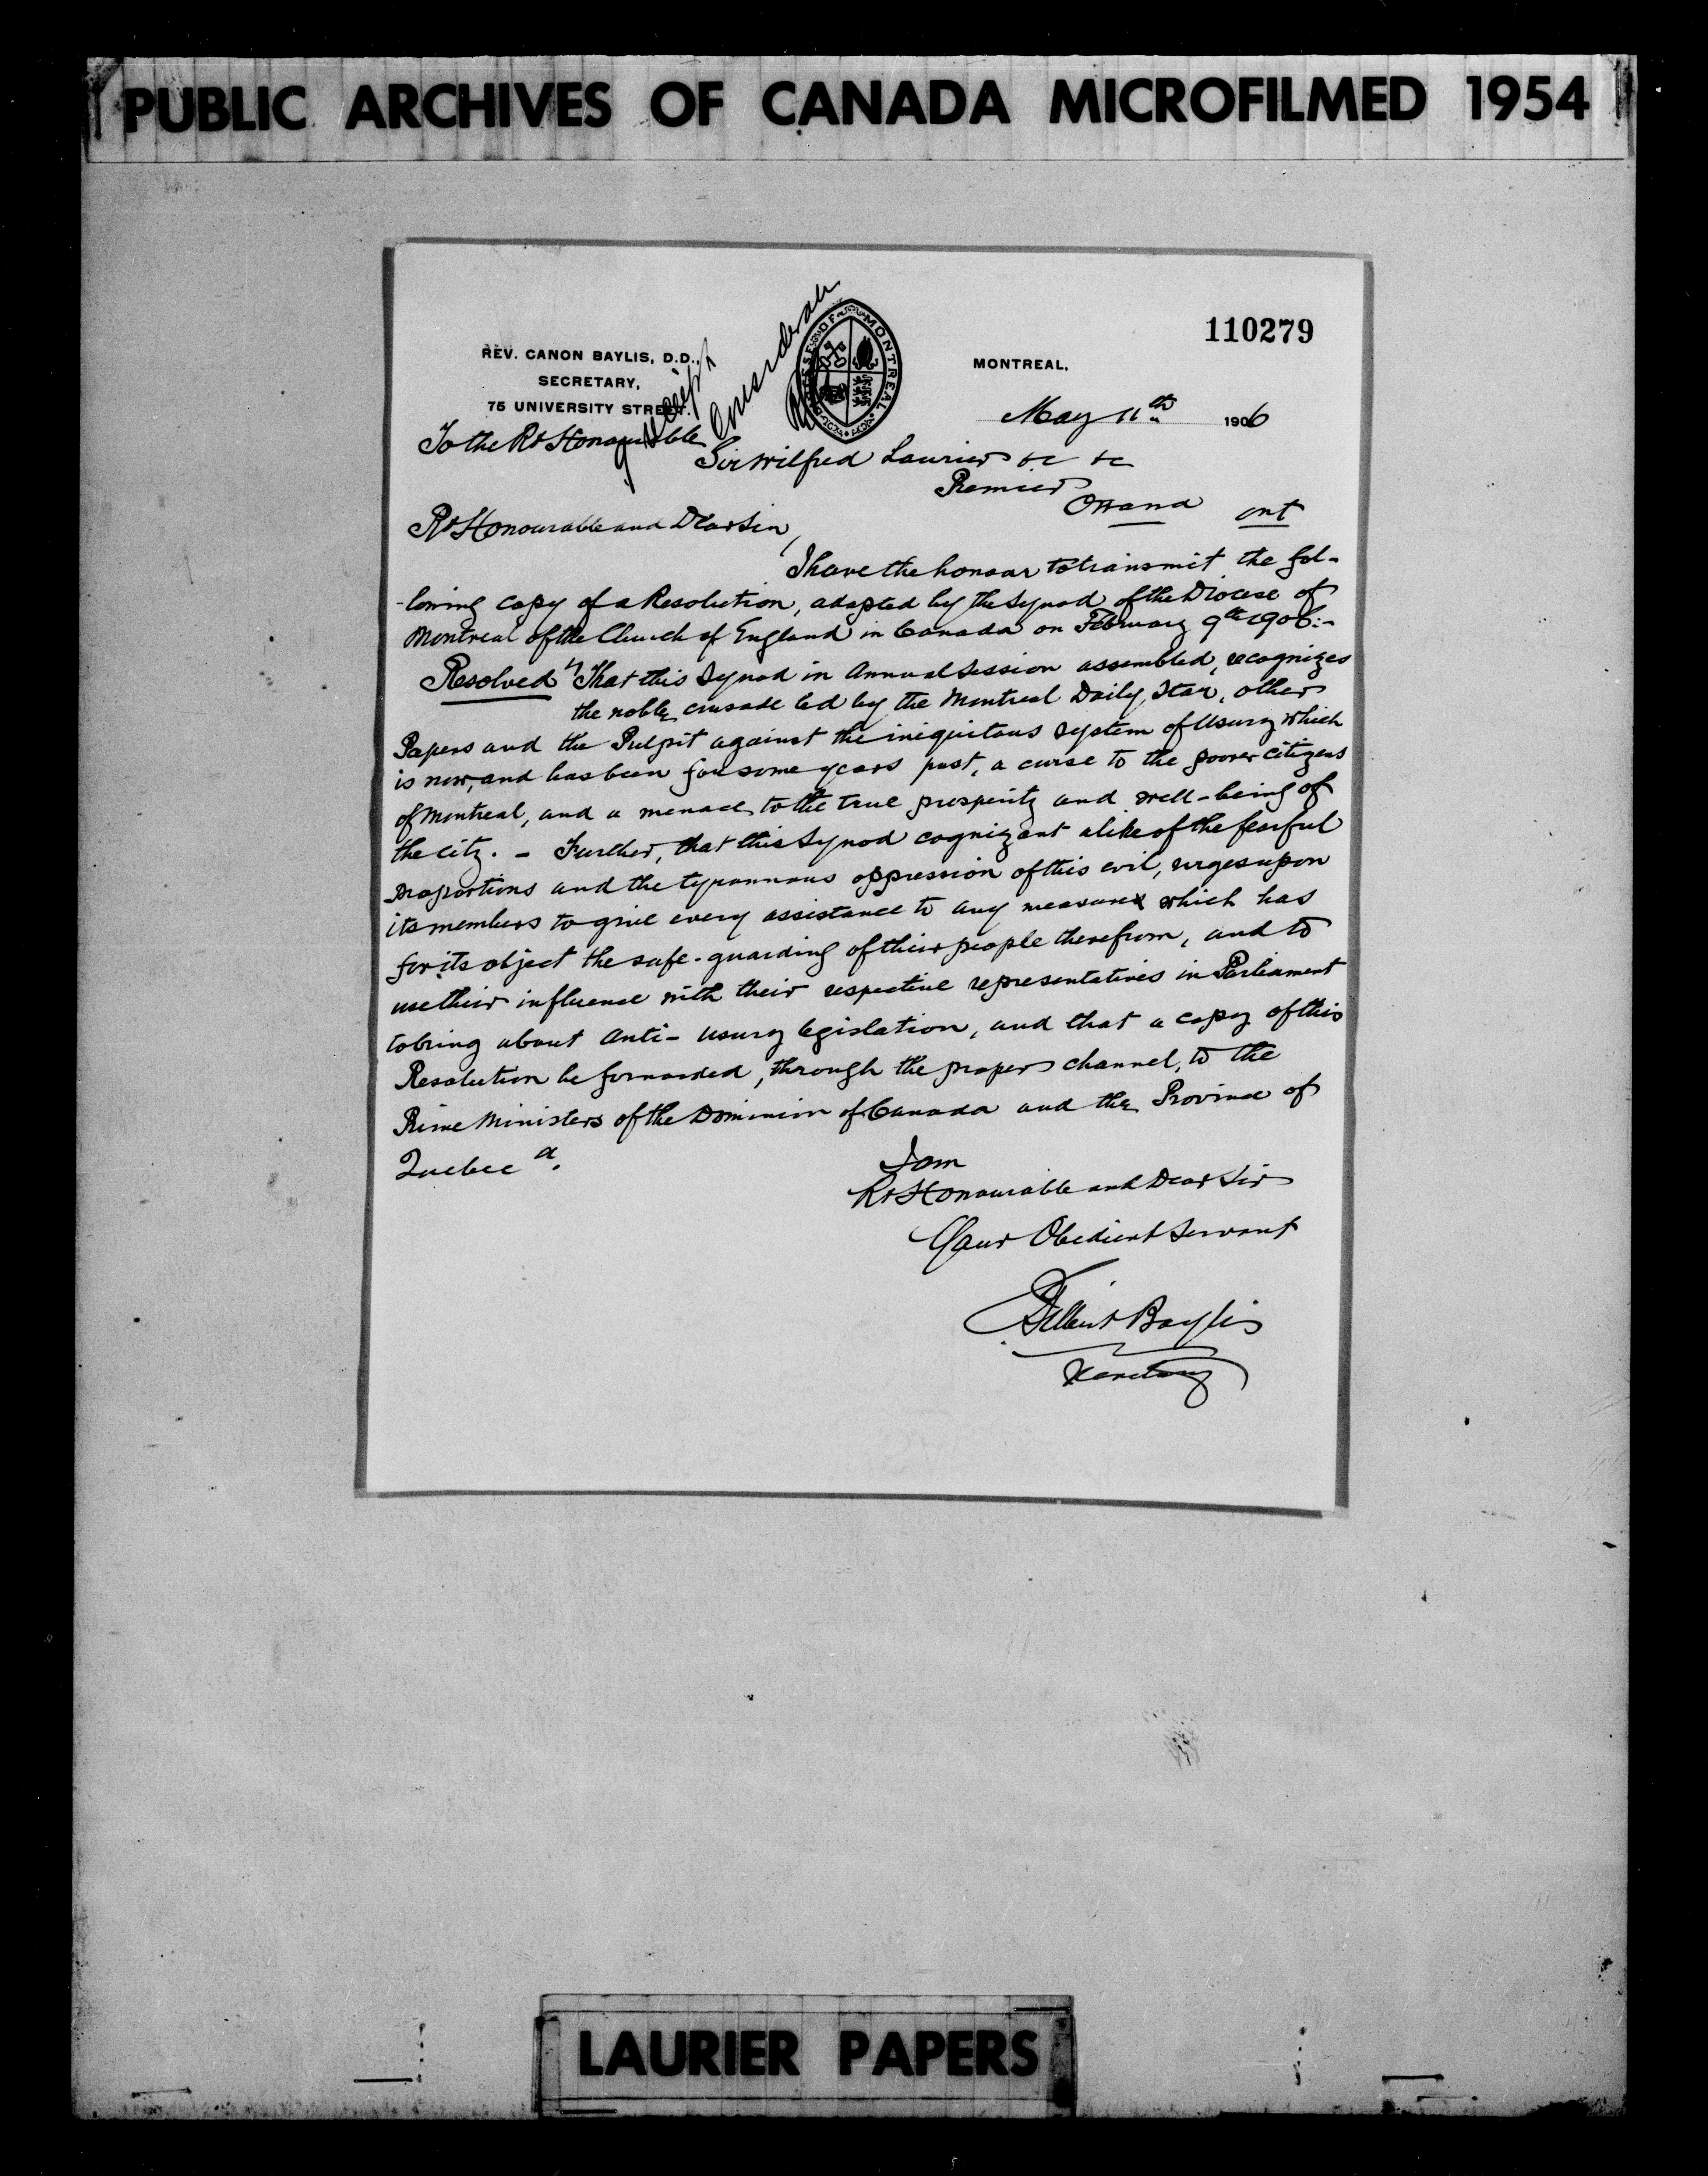 PUBLIC ARCHIVES OF CANADA MICROFILMED 1954
110279
REV. CANON BAYLIS, D.D.,
SECRETARY,
75 UNIVERSITY STREET.
MONTREAL,
May 11th 1906
To the Rt Honourable
Sir Wilfred Laurier &c &c
Premier
Ottawa Ont
Rt Honourable and Dear Sir,
I have the honour to transmit the fol-
-lowing copy of a Resolution, adopted by the Synod of the Diocese of
Montreal of the Church of England in Canada on February 9th 1906:-
Resolved "That this Synod in Annual Session assembled, recognizes
the noble crusade led by the Montreal Daily Star, other
Papers and the Pulpit against the iniquitous system of Usury which
is now, and has been for some years past, a curse to the poorer citizens
of Montreal, and a menace to the true prosperity and well-being of
the city. - Further, that this Synod cognizant alike of the fearful
proportions and the tyrannous oppression of this evil, urges upon
its members to give every assistance to any measure which has
for its object the safe-guarding of their people therefrom, and to
use their influence with their respective representatives in Parliament
to bring about Anti-usury legislation, and that a copy of this
Resolution be forwarded, through the proper channel, to the
Prime Ministers of the Dominion of Canada and the Province of
Quebec".
I am
Rt Honourable and Dear Sir
Your Obedient Servant
Baylis
Secretary
LAURIER PAPERS